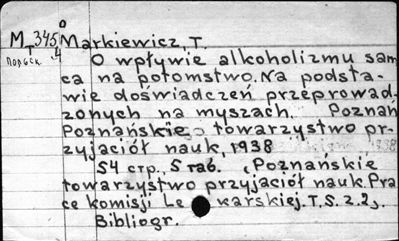 M 345 Markiewicz, T.
T 4
Польск. О wpływie alkoholizmu sam
ca na potomstwo. Na podsta-
wie doświadczeń przeprowad-
zonych na myszach. Poznań
Poznańskie towarzystwo pr-
zyjaciół nauk, 1938
54 стр., 5 таб. (Poznańskie
towarzystwo przyjaciół nauk. Pra
ce komisji Lekarskiej. T.S. z.2).
Bibliogr.